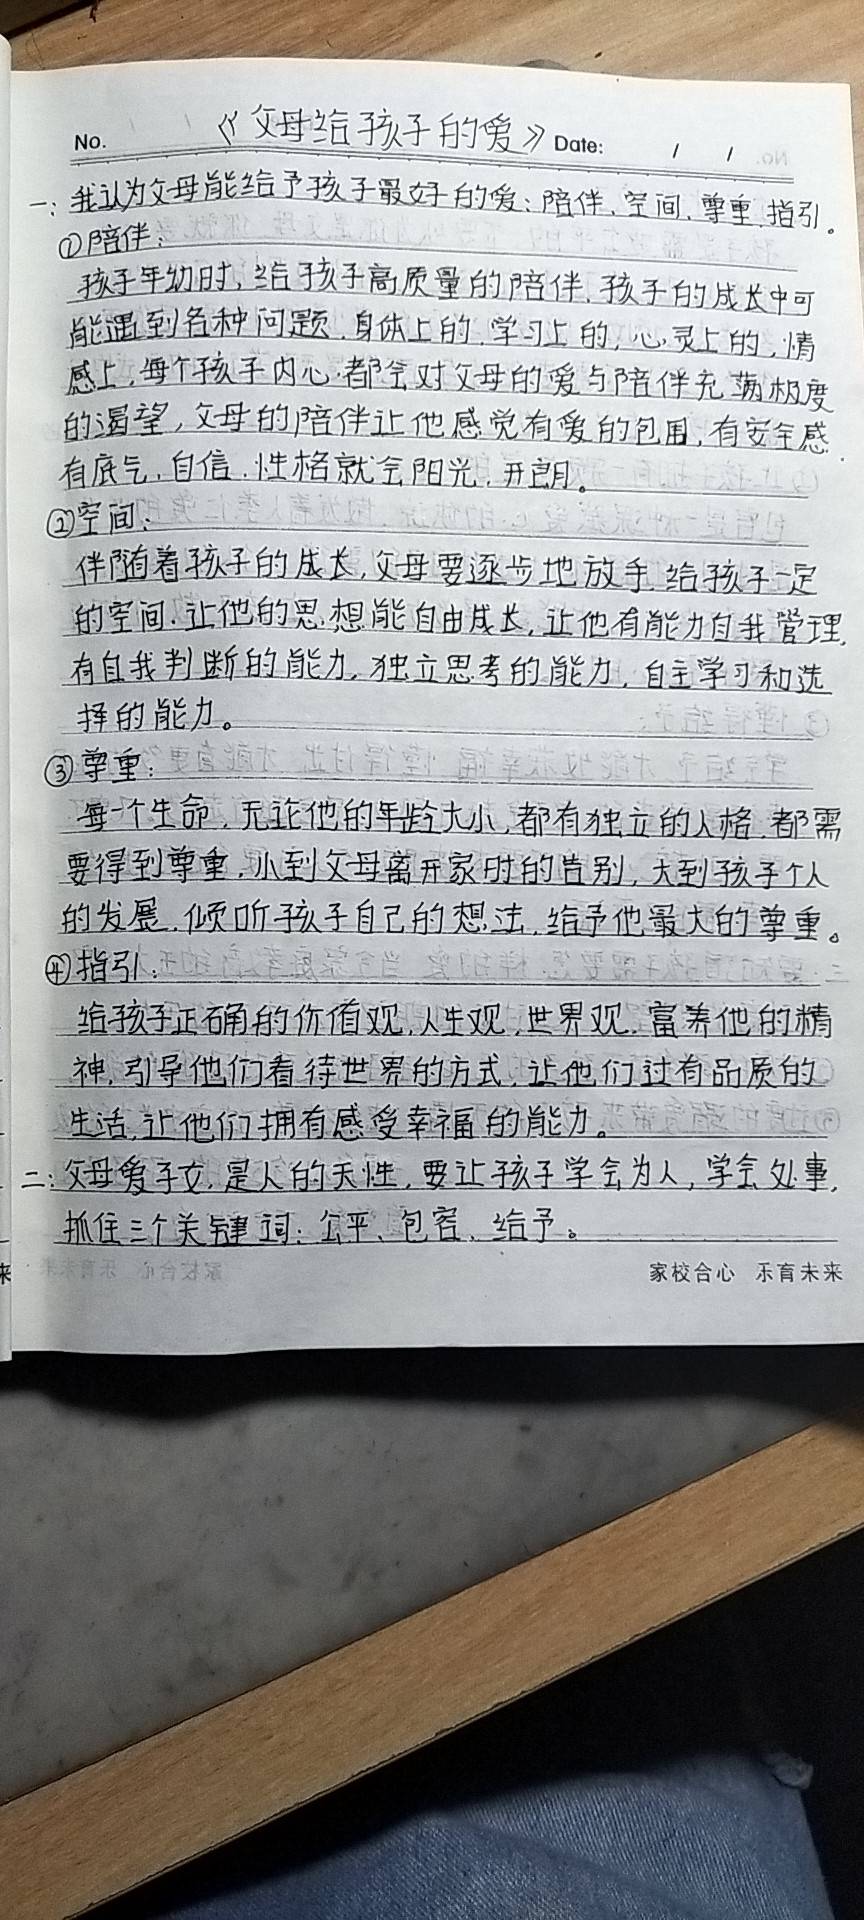 No. 《父母给孩子的爱》 Date: / /
一:我认为父母能给予孩子最好的爱:陪伴、空间、尊重、指引。
①陪伴:
孩子年幼时,给孩子高质量的陪伴,孩子的成长中可
能遇到各种问题,身体上的,学习上的,心灵上的,情
感上,每个孩子内心都会对父母的爱与陪伴充满极度
的渴望,父母的陪伴让他感觉有爱的包围,有安全感.
有底气,自信,性格就会阳光,开朗。
②空间:
伴随着孩子的成长,父母要逐步地放手,给孩子一定
的空间.让他的思想能自由成长,让他有能力自我管理,
有自我判断的能力,独立思考的能力,自主学习和选
择的能力。
③尊重:
每一个生命,无论他的年龄大小,都有独立的人格,都需
要得到尊重,小到父母离开家时的告别,大到孩子个人
的发展,倾听孩子自己的想法,给予他最大的尊重。
④指引:
给孩子正确的价值观,人生观,世界观,富养他的精
神,引导他们看待世界的方式,让他们过有品质的
生活,让他们拥有感受幸福的能力。
二:父母爱子女,是人的天性,要让孩子学会为人,学会处事,
抓住三个关键词:公平、包容、给予。
家校合心 乐育未来
来